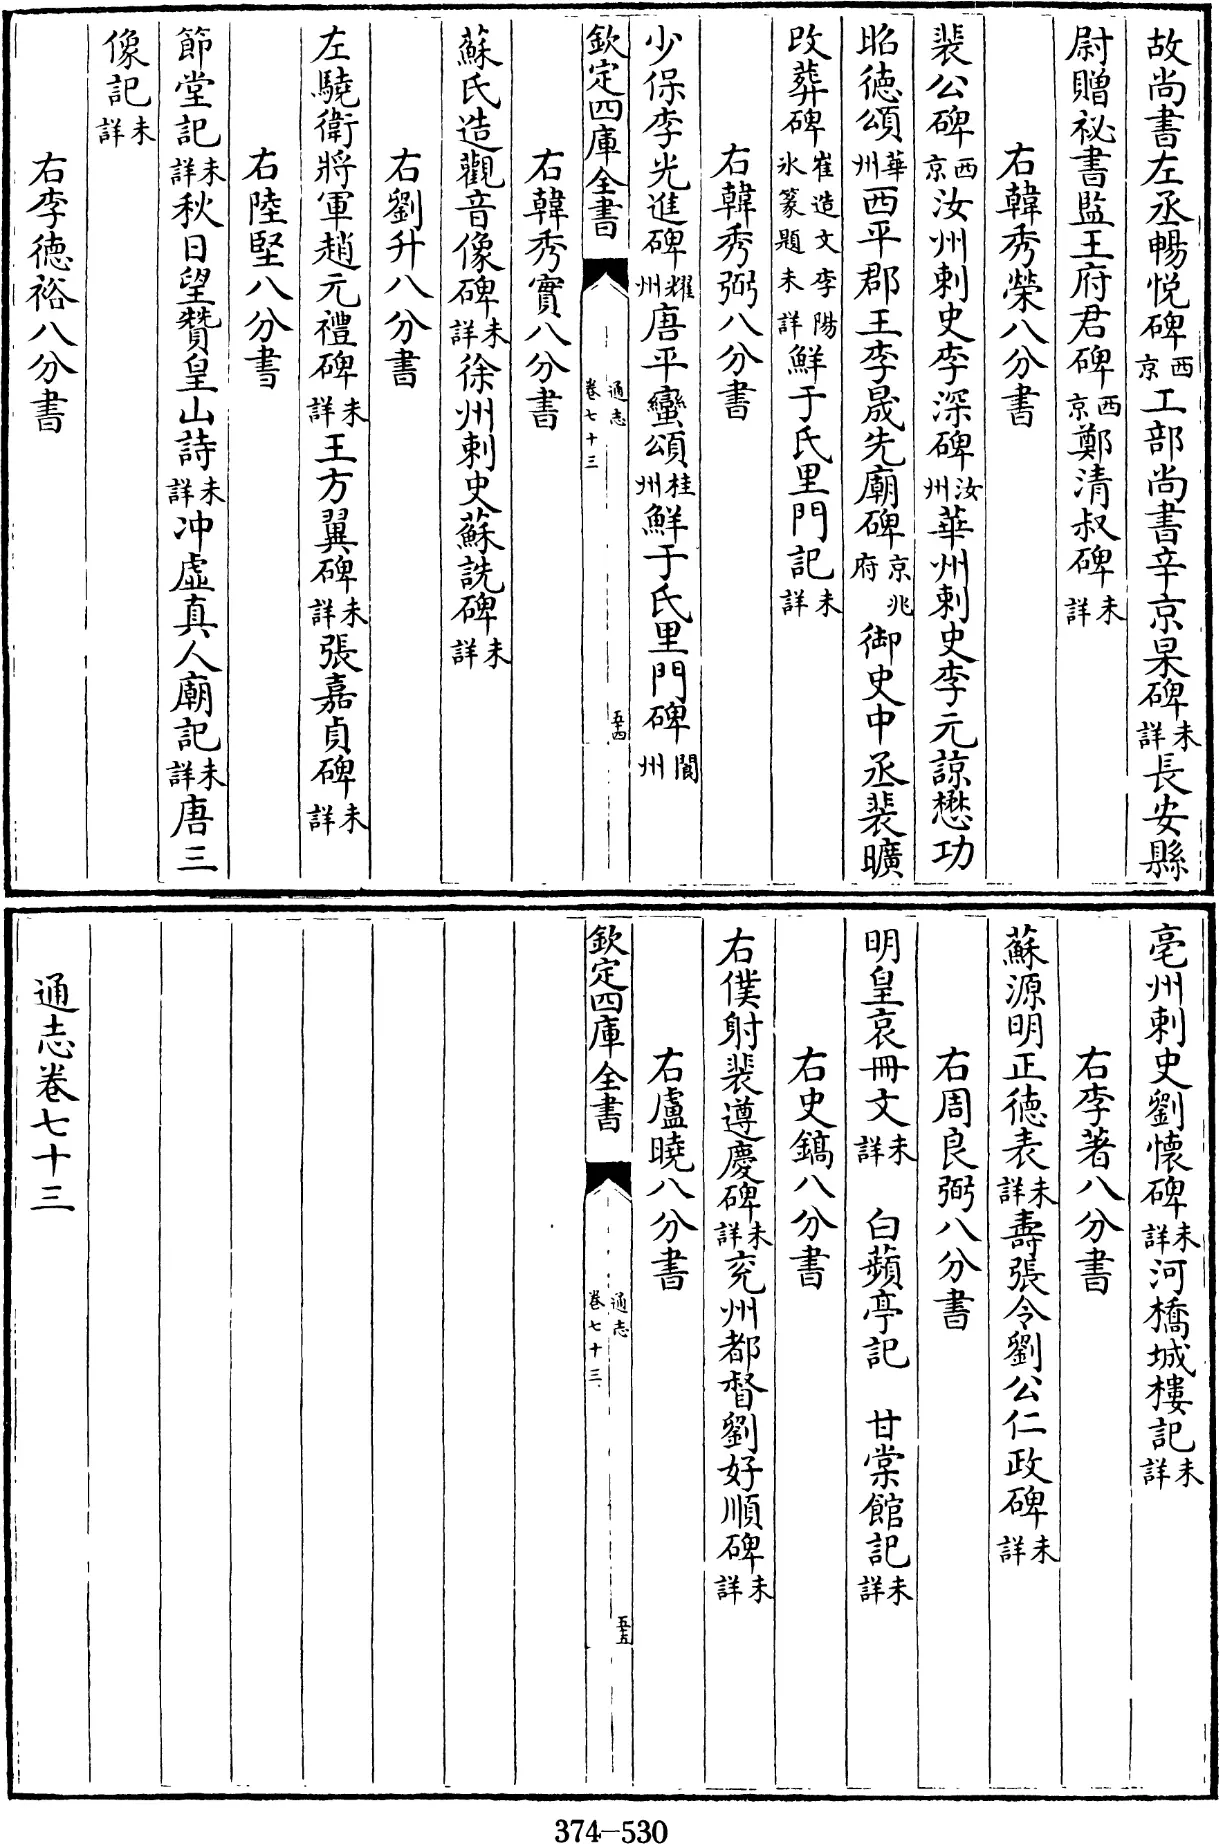 故尚書左丞暢悦碑西京工部尚書辛京杲碑未詳長安縣
尉贈祕書監王府君碑西京鄭清叔碑未詳
右韓秀榮八分書
裴公碑西京汝州刺史李深碑汝州華州刺史李元諒懋功
昭德頌華州西平郡王李晟先廟碑京兆府御史中丞裴曠
改葬碑崔造文李陽氷篆題未詳鮮于氏里門記未詳
右韓秀弼八分書
少保李光進碑耀州唐平蠻頌桂州鮮于氏里門碑閬州
欽定四庫全書
通志
卷七十三
五十四
右韓秀實八分書
蘇氏造觀音像碑未詳徐州刺史蘇詵碑未詳
右劉升八分書
左驍衛將軍趙元禮碑未詳王方翼碑未詳張嘉貞碑未詳
右陸堅八分書
節堂記未詳秋日望贊皇山詩未詳冲虛真人廟記未詳唐三
像記未詳
右李德裕八分書
亳州刺史劉懷碑未詳河橋城樓記未詳
右李著八分書
蘇源明正德表未詳壽張令劉公仁政碑未詳
右周良弼八分書
明皇哀冊文未詳 白蘋亭記 甘棠館記未詳
右史鎬八分書
右僕射裴遵慶碑未詳兗州都督劉好順碑未詳
右盧曉八分書
欽定四庫全書
通志
卷七十三
五十五
通志卷七十三
374-530